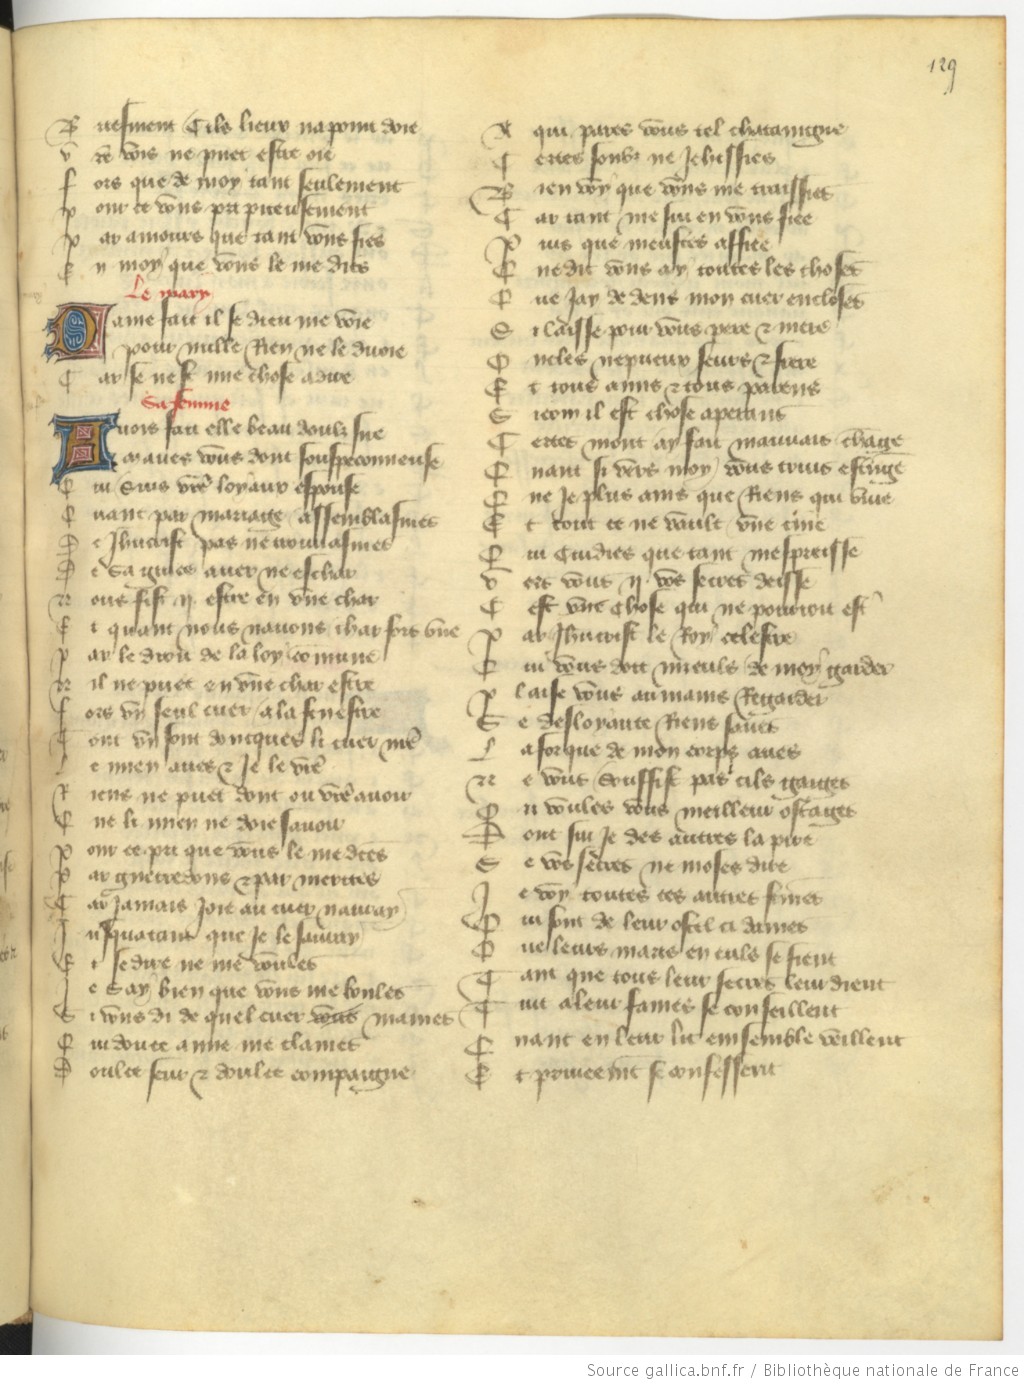 129
B riefment Cils lieux na point doie
V re vois ne puet estre oie
F ors que de moy tant seulement
P our ce vous pri piteusement
P ar amours que tant vous fies
E n moy que vous le me dites
Le mary
D ame fait il se dieu me voie
pour nulle Rien ne le diroie
C ar se nest mie chose a dire
Sa femme
A vois fait elle beau doulz sire
aues vous dont souspeconneuse
Q ui suis vre loyaux espouse
Q uant par mariage assemblasmes
pas ne trouuasmes
D e sa grace auer ne eschar
N ous fist ij estre en vne char
E t quant nous nauons char fors vne
P ar le droit de la loy comune
N il ne puet en vne char estre
F ors vn seul cuer a la senestre
T out vn sont doncques li cuer nre
L e mien aues et Je le vre
R iens ne puet dont ou vre auoir
Q ue li mien ne doie sauoir
P our ce pri que vous le me dites
P ar guerredons et par merites
C ar Jamais Joie au cuer nauray
J usquatant que Je le sauray
E t se dire ne me voules
J e say bien que vous me boules
S i vous di de quel cuer vous mames
Q ui douce amie me clames
D oulce seur et doulce compaigne
A qui pares vous tel chataingne
C ertes sonbz ne Jehissies
B ien voy que vous me traissies
C ar tant me sui en vous fiee
P uis que meustes affiee
Q ue dit vous ay toutes les choses
Q ue Jay dedens mon cuer encloses
S i laisse pour vous pere et mere
O ncles nepueux seurs et frere
E t tous amis et tous parens
S icom il est chose aperans
C ertes mont ay fait mauuais change
Q uant si vers moy vous truis estrange
Q ue Je plus ains que Riens qui viue
E t tout ce ne vault vne ciue
Q ui Cuidies que tant mespreisse
V ers vous ij vos secres deisse
C est vne Chose qui ne pourroit est
P ar Jhucrist le Roy celestre
Q ui vous doit mieuls de moy garder
P laise vous aumains Regarder
S e desloyaute Riens saues
L a foi que de mon corps aues
N e vous Souffist pas cils gaiges
E n voules vous meilleur ostages
D ont sui Je des autres la pire
S e vos secres ne moses dire
J e voy toutes ces autres femes
Q ui sont de leur ostel ci dames
Q ue leurs maris en euls se fient
T ant que tous leur secres leur dient
T uit a leur fames se conseillent
Q uant en leur lit emsemble veillent
E t priueemt se confessent
Source gallica.bnf.fr / Bibliothèque nationale de France